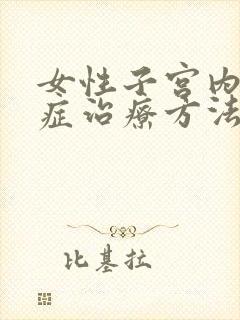 女性子宫内
症治疗方法
比基拉